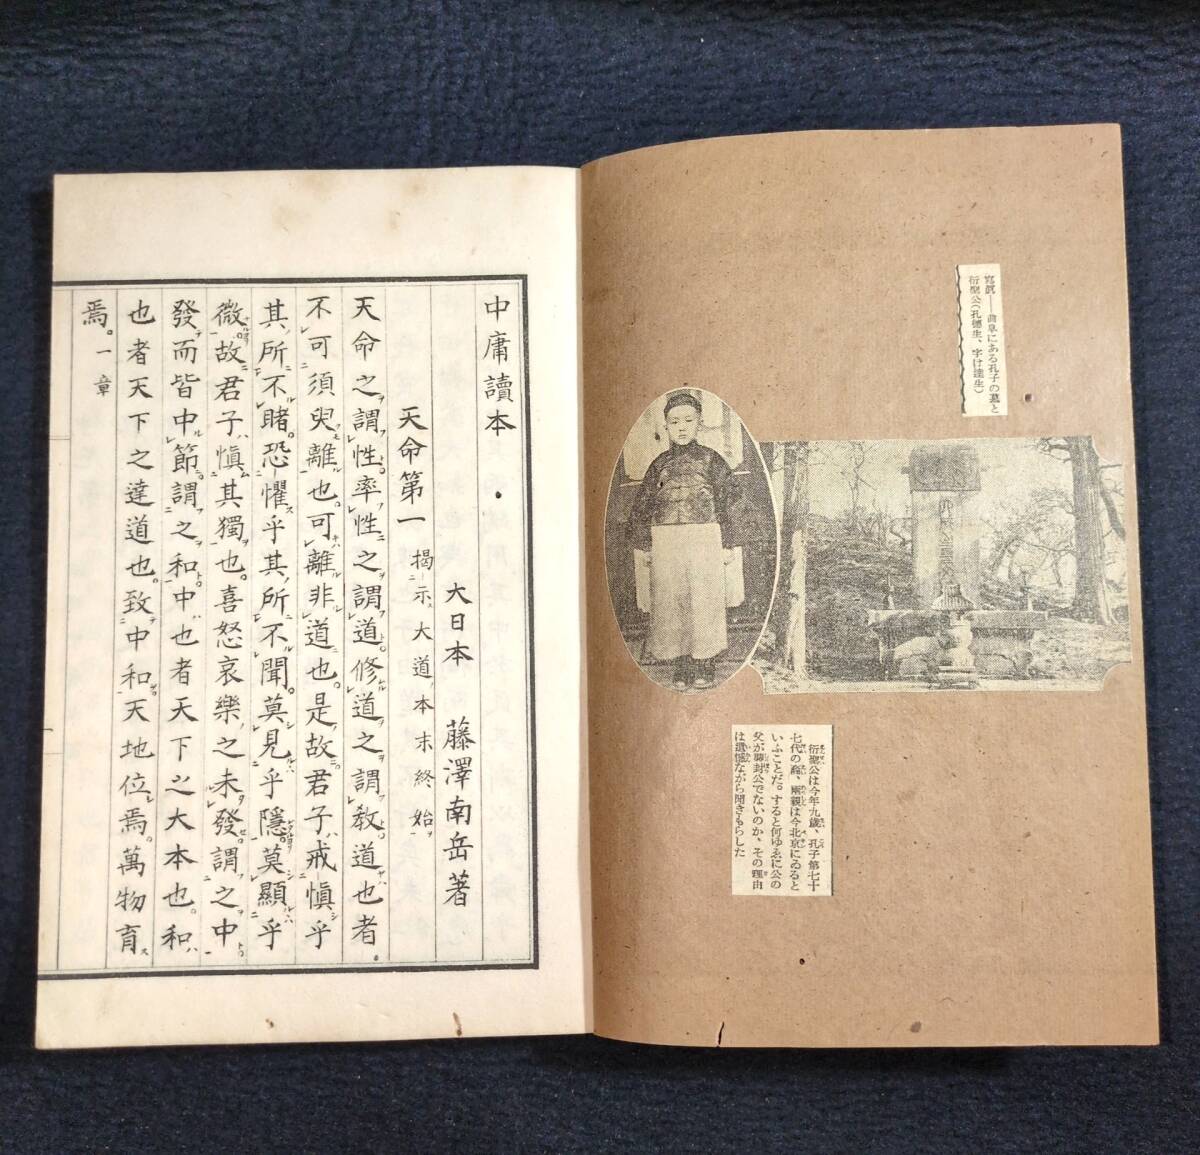 寫眞――曲阜にある孔子の墓と
衍聖公(孔德生、字け達生)
衍聖公は今年九歳、孔子第七十
七代の裔、兩親は今北京にゐると
いふことだ。すると何ゆゑに公の
父が襲封公でないのか、その理由
は遺憾ながら聞きもらした
中庸讀本
大日本 藤澤南岳著
天命第一 揭示大道本末終始
天命之謂性。率性之謂道。修道之謂敎。道也者。
不可須臾離也。可離非道也。是故君子戒愼乎
其所不睹。恐懼乎其所不聞。莫見乎隱。莫顯乎
微。故君子愼其獨也。喜怒哀樂之未發謂之中
發而皆中節。謂之和。中也者天下之大本也。和
也者天下之達道也。致中和天地位焉。萬物育
焉。一章